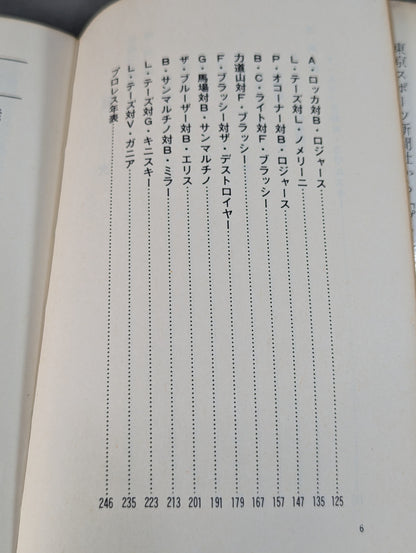 東京スポーツ新聞社
A・ロッカ対B・ロジャース……125
L・テーズ対L・ノメリーニ……135
P・オコーナー対B・ロジャース……147
B・C・ライト対F・ブラッシー……157
力道山対F・ブラッシー……167
F・ブラッシー対ザ・デストロイヤー……179
G・馬場対B・サンマルチノ……191
ザ・ブルーザー対B・エリス……201
B・サンマルチノ対B・ミラー……213
L・テーズ対G・キニスキー……223
L・テーズ対V・ガニア……235
プロレス年表……246
6